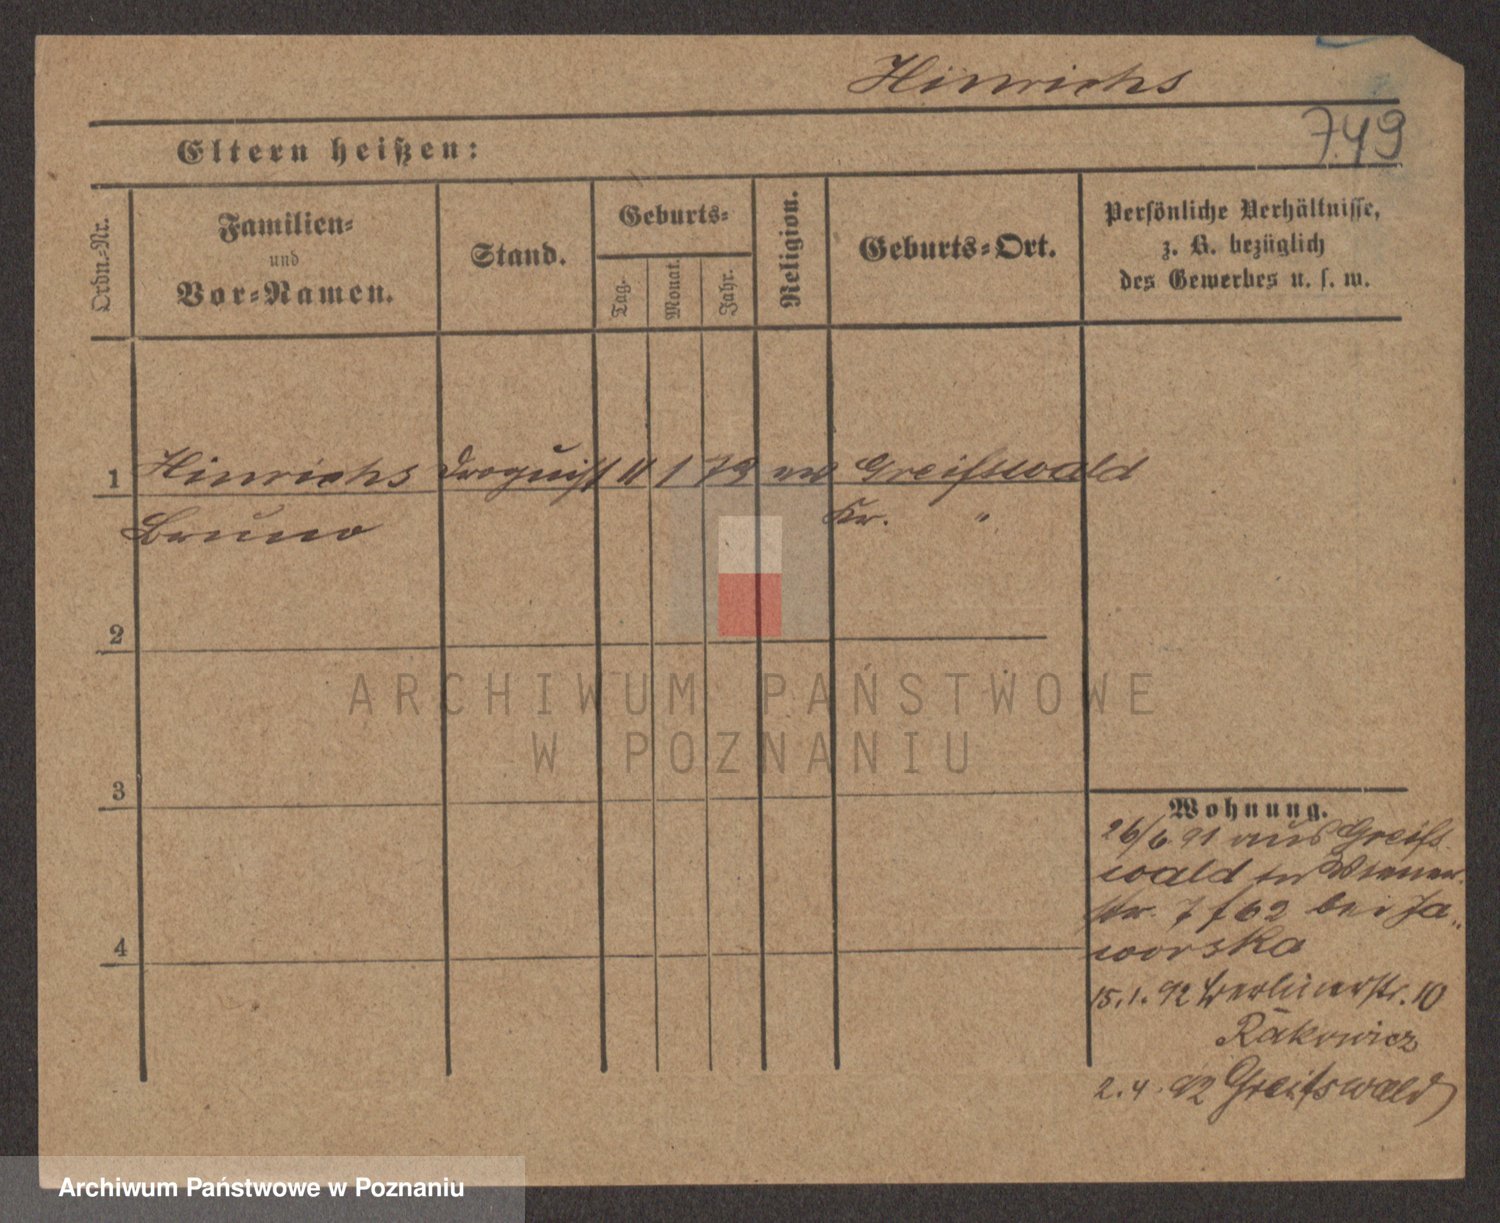 Hinrichs
749
Eltern heißen:
Ordn.-Nr.
Familien-
und
Vor-Namen.
Stand.
Geburts-
Tag.
Monat.
Jahr.
Religion.
Geburts-Ort.
Persönliche Verhältnisse,
z. B. bezüglich
des Gewerbes u. s. w.
1 Hinrichs Droguist 11 1 73 ev Greifswald
Bruno Kr. "
2
ARCHIWUM PAŃSTWOWE
W POZNANIU
3
4
Wohnung.
26/6 91 aus Greifs
wald in Wiener
str. 7 f 62 bei Ja„
worska
15.1.92 Berlinerstr. 10
Rakowicz
2.4.92 Greifswald
Archiwum Państwowe w Poznaniu